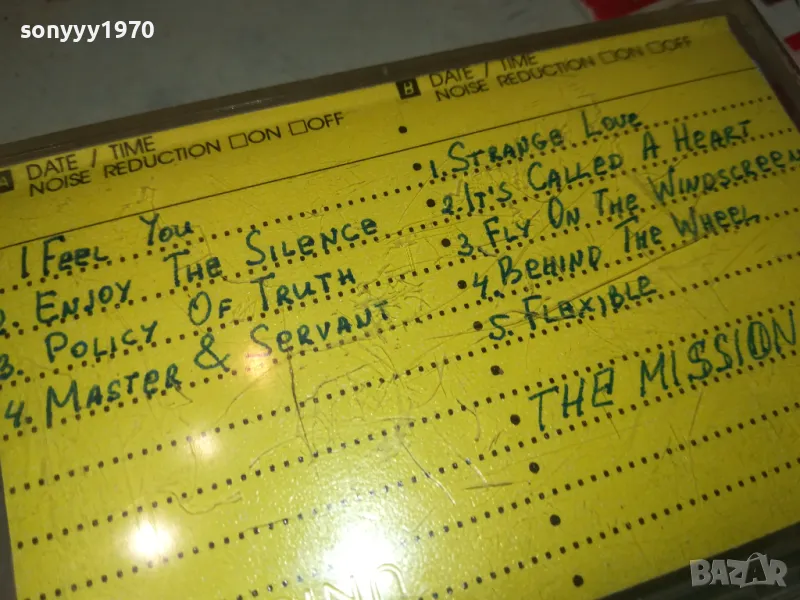 sonyyy1970
A DATE / TIME
NOISE REDUCTION □ON □OFF
1 FEEL YOU
2. ENJOY THE SILENCE
3. POLICY OF TRUTH
4. MASTER & SERVANT
B DATE / TIME
NOISE REDUCTION □ON □OFF
1. STRANGE LOVE
2. IT'S CALLED A HEART
3. FLY ON THE WINDSCREEN
4. BEHIND THE WHEEL
5. FLEXIBLE
THE MISSION
BAZAR